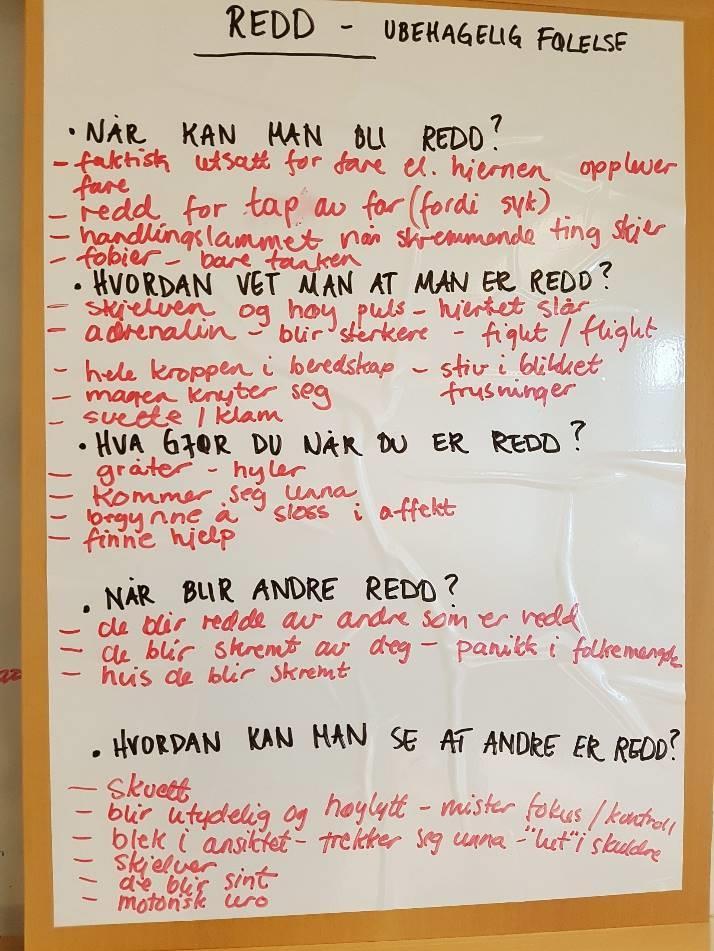 REDD - UBEHAGELIG FØLELSE
• NÅR KAN MAN BLI REDD?
- faktisk utsatt for fare el. hjernen opplever
fare
- redd for tap av far (fordi syk)
- handlingslammet når skremmende ting skjer
- fobier - bare tanken
• HVORDAN VET MAN AT MAN ER REDD?
- skjelven og høy puls - hjertet slår
- adrenalin - blir sterkere - fight / flight
- hele kroppen i beredskap - stiv i blikket
- magen knyter seg frysninger
- svette / klam
• HVA GJØR DU NÅR DU ER REDD?
- gråter - hyler
- kommer seg unna
- begynne å sloss i affekt
- finne hjelp
• NÅR BLIR ANDRE REDD?
- de blir redde av andre som er redd
- de blir skremt av deg - panikk i folkemengde
- hvis de blir skremt
• HVORDAN KAN MAN SE AT ANDRE ER REDD?
- Skvett
- blir utydelig og høylytt - mister fokus / kontroll
- blek i ansiktet - trekker seg unna - "lut" i skuldre
- skjelver
- de blir sint
- motorisk uro